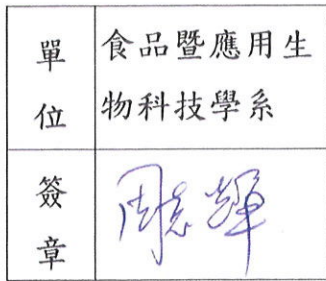 單位
食品暨應用生
物科技學系
簽章
周志輝